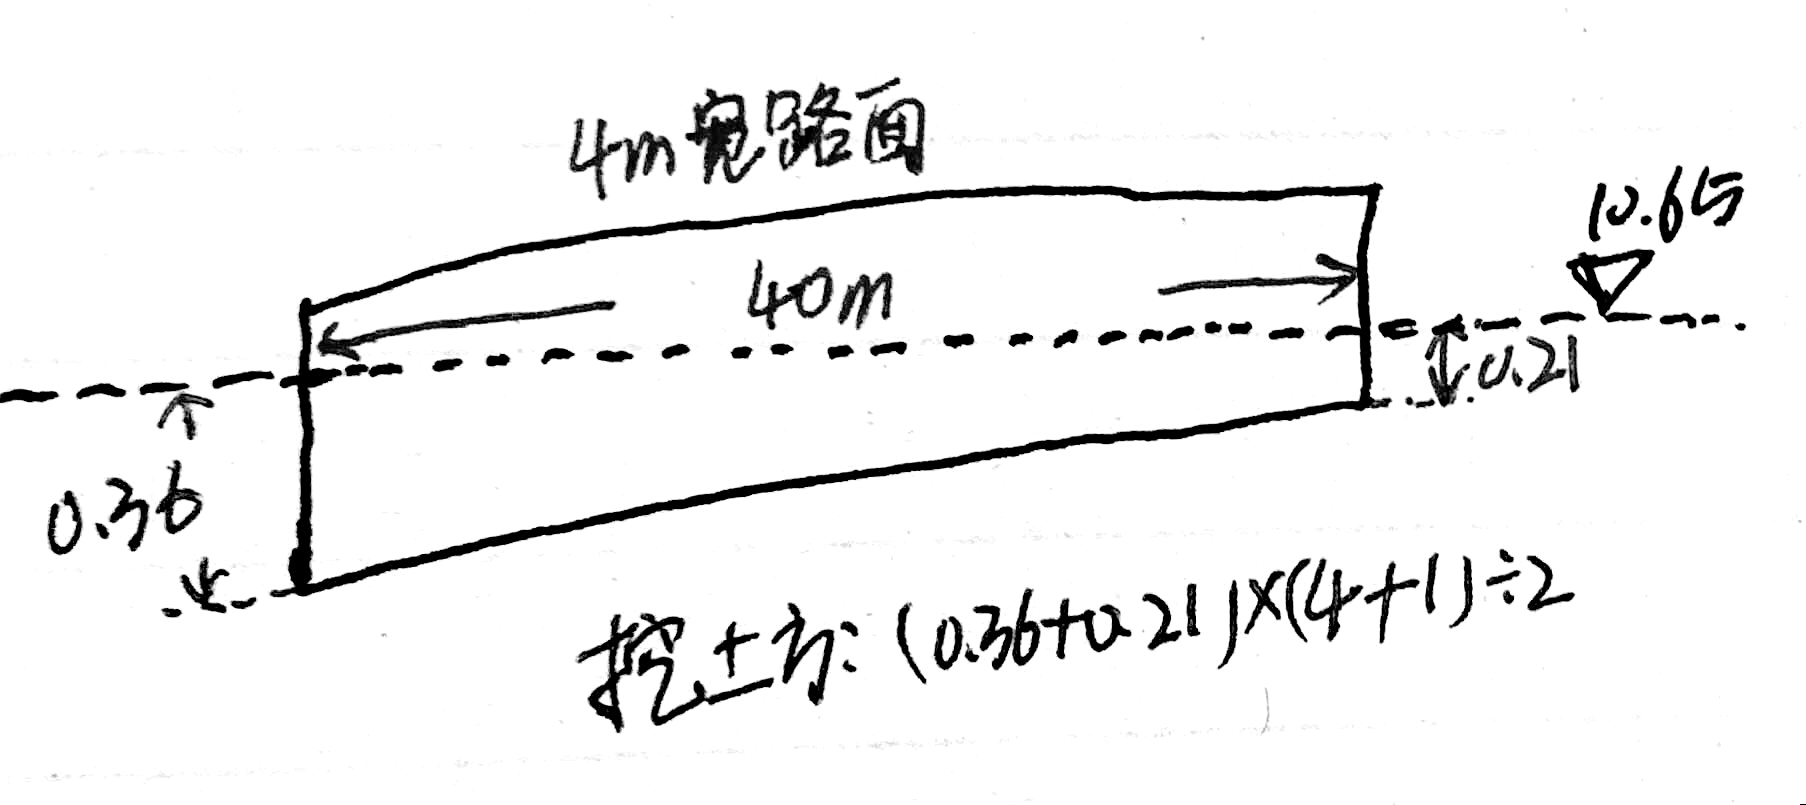 4m宽路面
10.65
40m
0.21
0.36
挖土方:(0.36+0.21)×(4+1)÷2